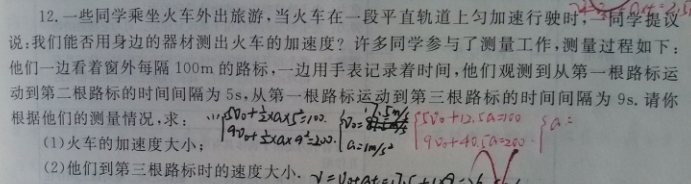 12.一些同学乘坐火车外出旅游,当火车在一段平直轨道上匀加速行驶时,一同学提议
说:我们能否用身边的器材测出火车的加速度?许多同学参与了测量工作,测量过程如下:
他们一边看着窗外每隔100m的路标,一边用手表记录着时间,他们观测到从第一根路标运
动到第二根路标的时间间隔为5s,从第一根路标运动到第三根路标的时间间隔为9s.请你
根据他们的测量情况,求: (1) 5v₀+½×a×5²=100. v₀= 7.5m/s 5v₀+12.5a=100 a=
9v₀+½×a×9²=200. a=1m/s² 9v₀+40.5a=200
(1)火车的加速度大小;
(2)他们到第三根路标时的速度大小. v=v₀+at=7.5+1×9=16.5